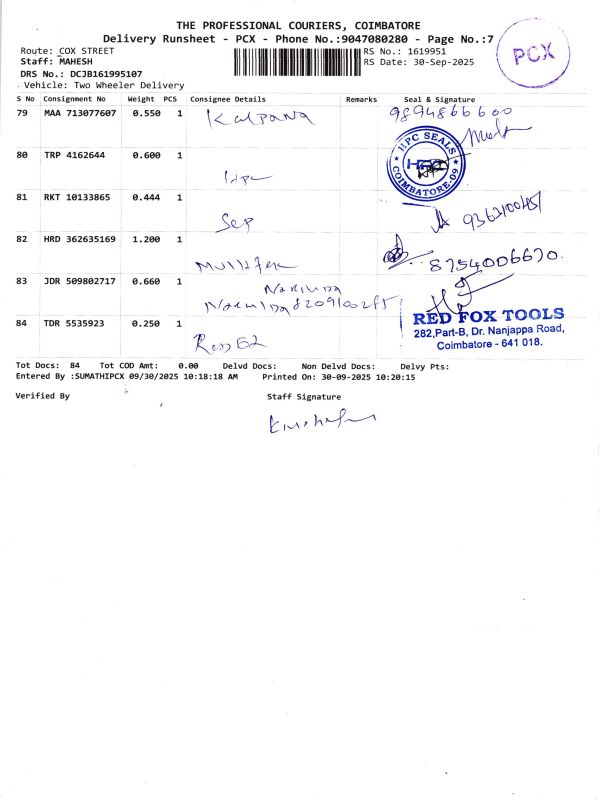 THE PROFESSIONAL COURIERS, COIMBATORE
Delivery Runsheet - PCX - Phone No.:9047080280 - Page No.:7
Route: COX STREET
Staff: MAHESH
DRS No.: DCJB161995107
Vehicle: Two Wheeler Delivery
RS No.: 1619951
RS Date: 30-Sep-2025
PCX
S No Consignment No Weight PCS Consignee Details Remarks Seal & Signature
79 MAA 713077607 0.550 1 Kalpana 9894866600
80 TRP 4162644 0.600 1 Hpc
HPC SEALS
HPC
COIMBATORE-09
81 RKT 10133865 0.444 1 Sep
82 HRD 362635169 1.200 1 8754006670.
83 JDR 509802717 0.660 1 Narmada
Narmada 8209100285
84 TDR 5535923 0.250 1
RED FOX TOOLS
282,Part-B, Dr. Nanjappa Road,
Coimbatore - 641 018.
Tot Docs: 84 Tot COD Amt: 0.00 Delvd Docs: Non Delvd Docs: Delvy Pts:
Entered By :SUMATHIPCX 09/30/2025 10:18:18 AM Printed On: 30-09-2025 10:20:15
Verified By Staff Signature